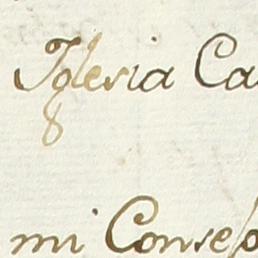 Iglesia Ca
mi Consejo